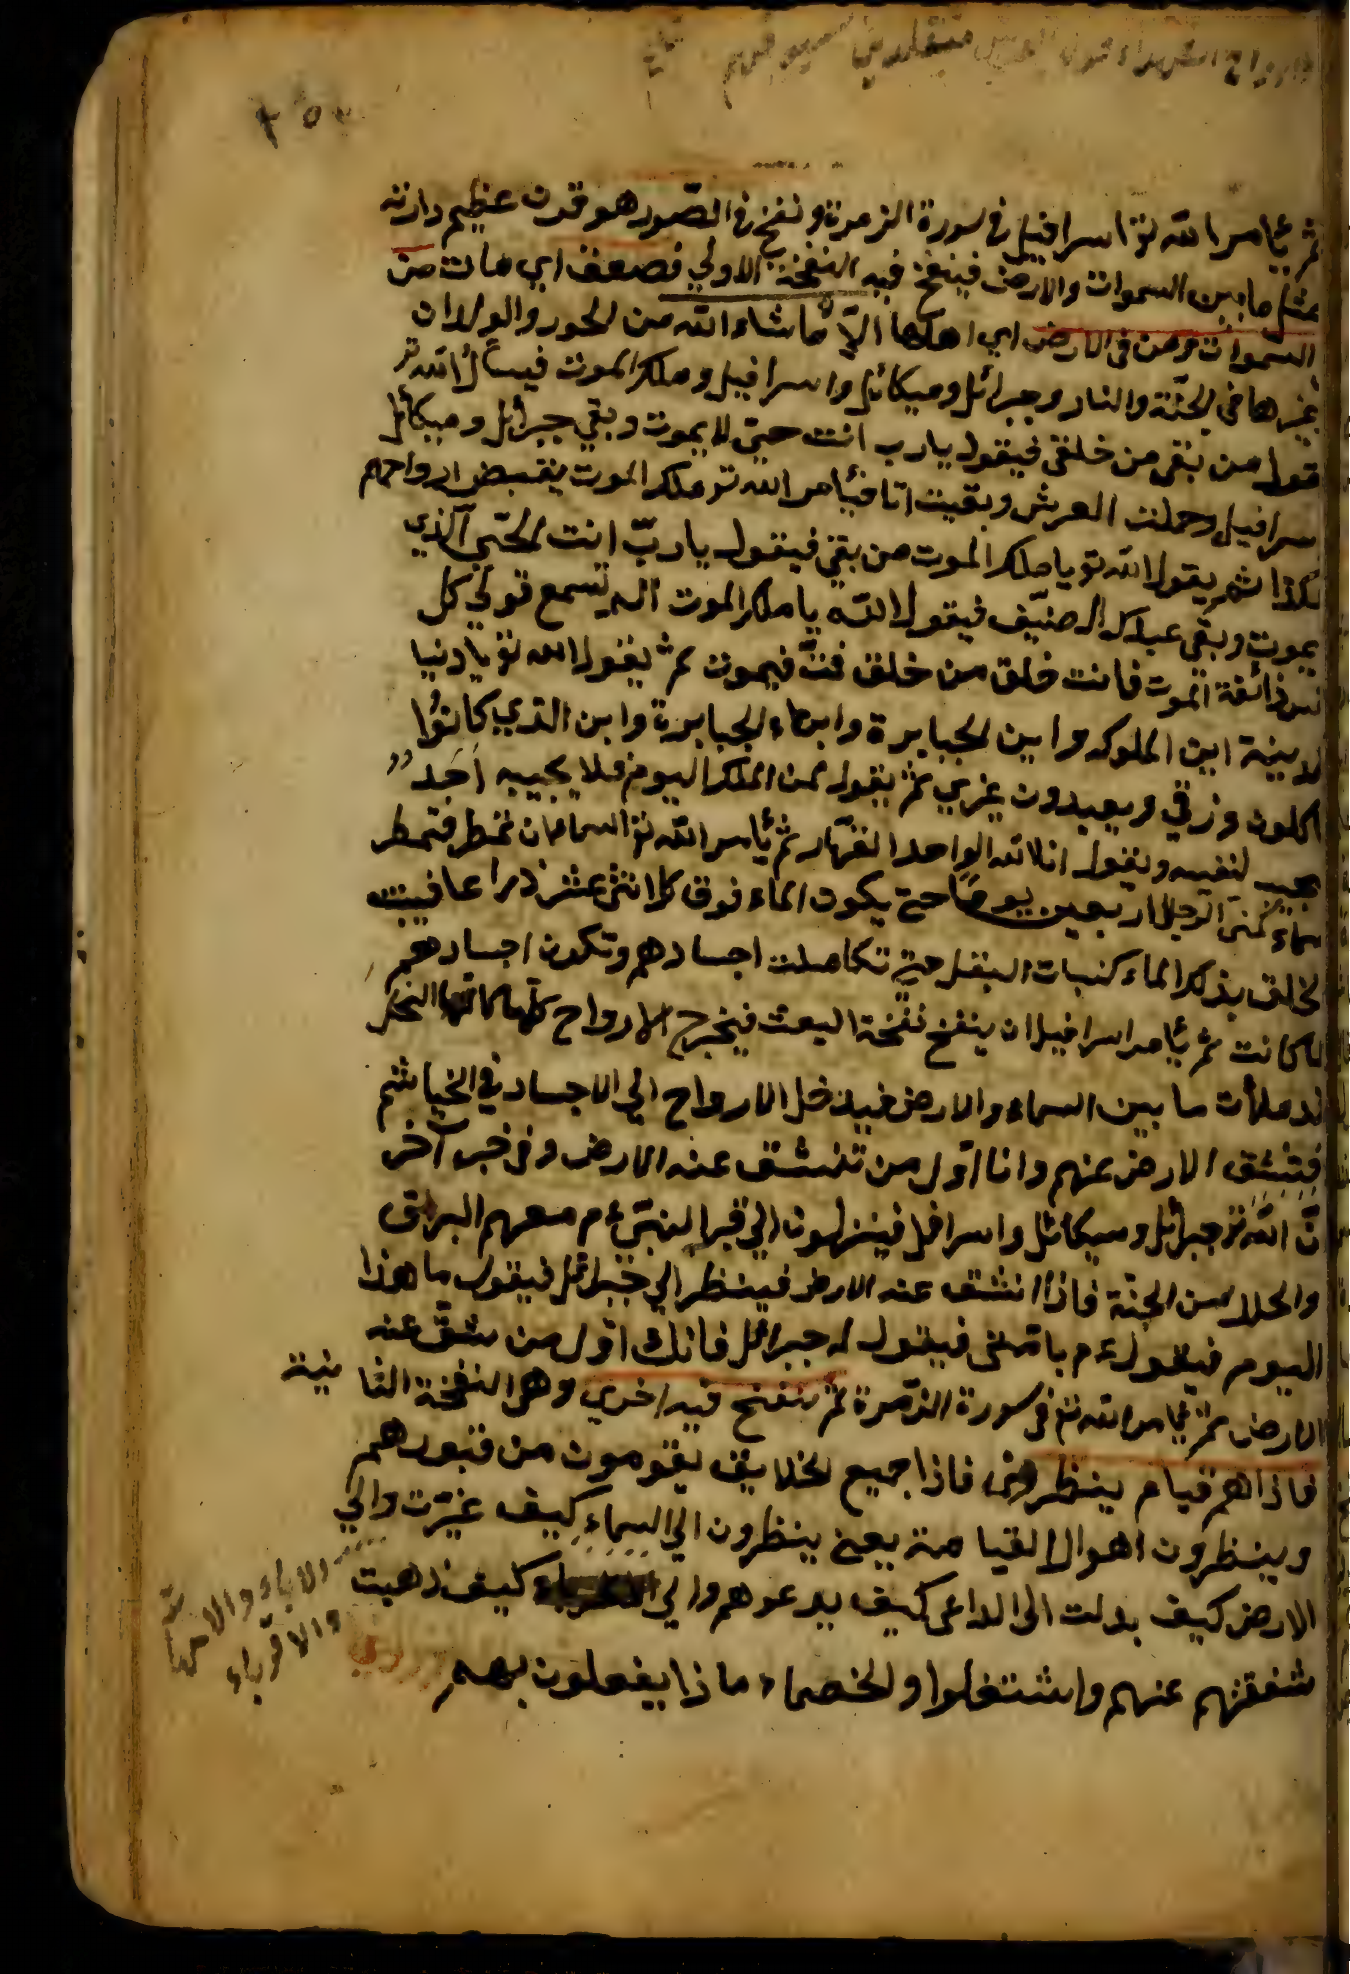 وارواح الشهداء حول العرش متقلدين سيوفهم
ثم يأمر الله تع اسرافيل في سورة الزمرة ونفخ في الصور هو قرن عظيم دارته
مثل ما بين السموات والارض فينفخ فيه النفخة الاولي فصعق اي مات من
السموات ومن في الارض اي اهلها الا ما شاء الله من الحور والولدان
غيرها في الجنة والنار وجبرائل وميكائل واسرافيل وملك الموت فيسأل الله تع
قول من بقي من خلقي فيقول يا رب انت حي لا يموت وبقي جبرائل وميكائل
سرافيل وحملت العرش وبقيت انا فيأمر الله تع ملك الموت يقبض ارواحهم
كذا ثم يقول الله تع يا ملك الموت من بقي فيقول يا رب انت الحي الذي
يموت وبقي عبدك الضيف فيقول الله يا ملك الموت الم تسمع قولي كل
نفس ذائقة الموت فانت خلق من خلق فت فيموت ثم يقول الله تع يا دنيا
لدينة اين الملوك واين الجبابرة وابناء الجبابرة واين الذي كانوا
اكلون ورزقي ويعبدون غيري ثم يقول لمن الملك اليوم فلا يجيبه احد
يجيب لنفسه ويقول انا لله الواحد القهار ثم يأمر الله تع السماء ان تمطر فتمطر
سماء كمني الرجال اربعين يوما حتي يكون الماء فوق كل اثني عشر ذراعا فينبت
لخلق بذلك الماء كنبات البقل حتي تكاملت اجسادهم وتكون اجسادهم
كما كانت ثم يأمر اسرافيل ان ينفخ نفخة البعث فيخرج الارواح كلها كانها النحل
قد ملأت ما بين السماء والارض فيدخل الارواح الي الاجساد في الخياشم
فتنشق الارض عنهم وانا اول من تنشق عنه الارض وفي خبر آخر
ن الله تع جبرائل وميكائل واسرافل فينزلون الي قبر النبي ع م معهم البراق
والحلا من الجنة فاذا انشق عنه الارض فينظر الي جبرائل فيقول ما هذا
اليوم فيقول ع م بامتي فيقول له جبرائل فانك اول من شق عنه
الارض ثم يأمر الله تع في سورة الزمرة ثم ينفخ فيه اخري وهي النفخة الثانية
فاذا هم قيام ينظرون فاذا جميع الخلايق يقومون من قبورهم
وينظرون اهوال القيامة يعني ينظرون الي السماء كيف غيرت والي
الارض كيف بدلت الي الداعي كيف يدعوهم والي كيف ذهبت
الاباء والامهات
والاقرباء
شفقتهم عنهم واشتغلوا والخصماء ماذا يفعلون بهم